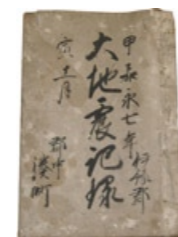 甲嘉永七年
大地震記録
寅十一月
郡中
湊町